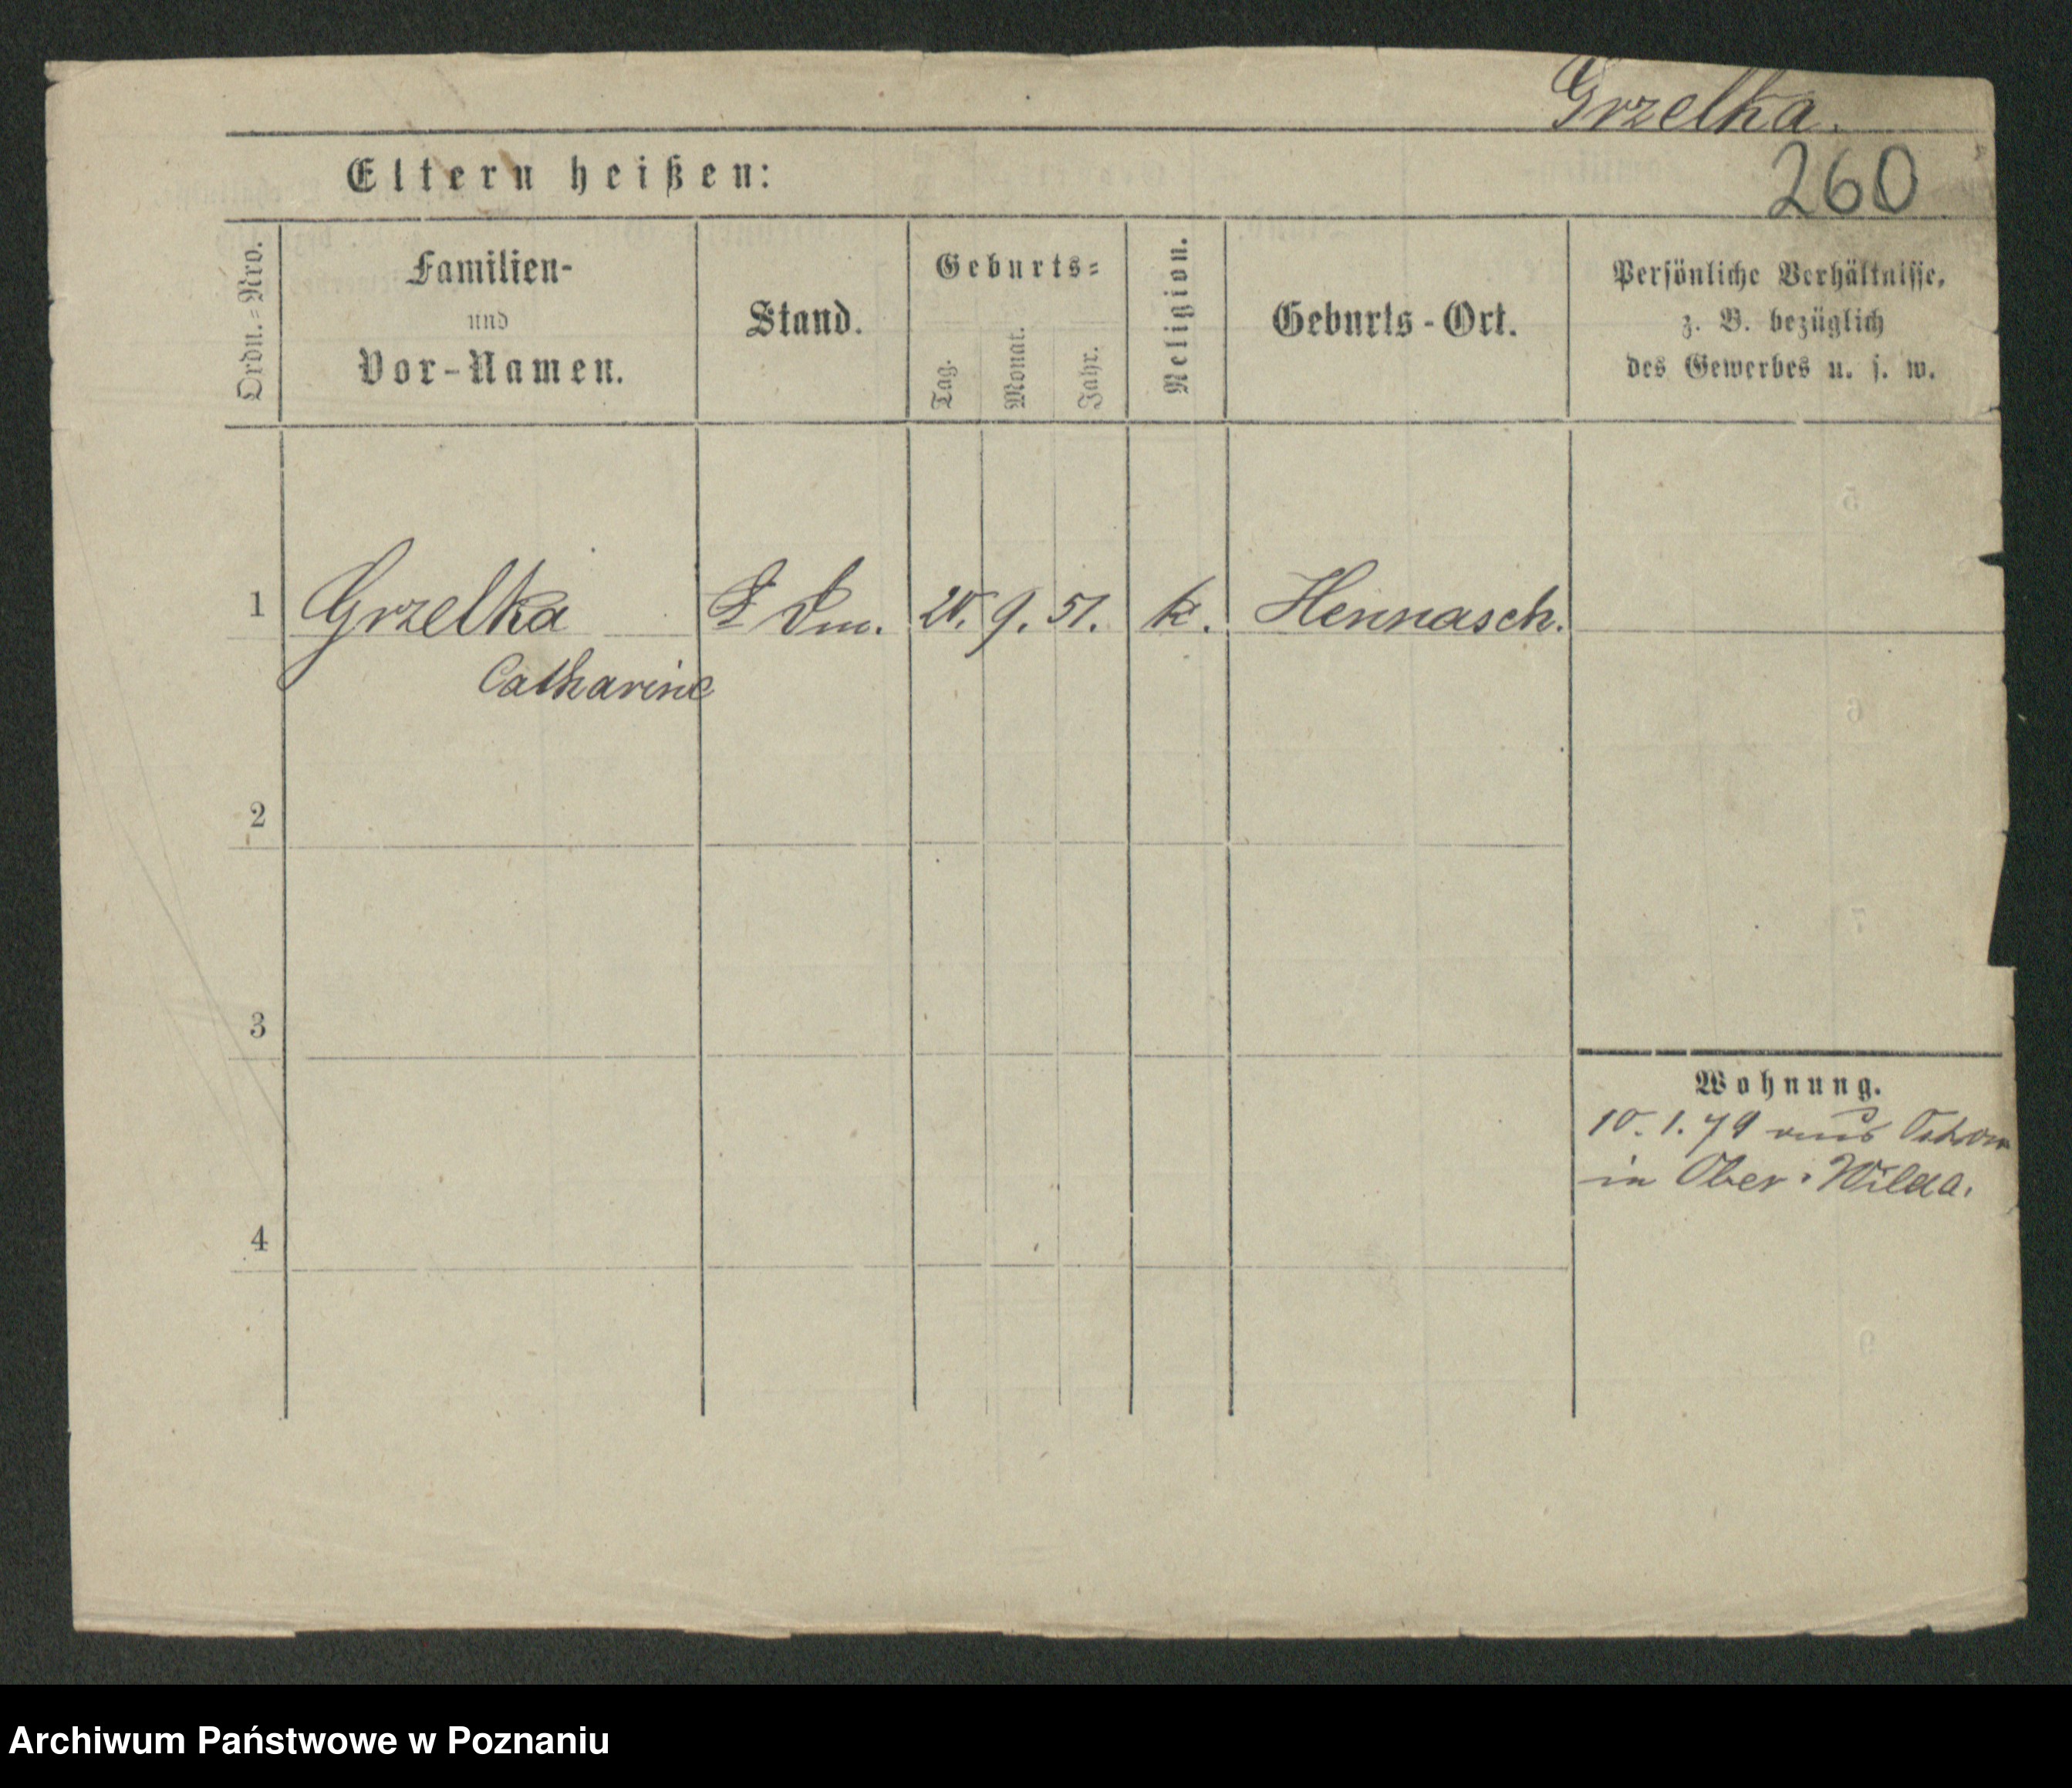 Grzelka.
260
Eltern heißen:
Ordn.-Nro.
Familien-
und
Vor-Namen.
Stand.
Geburts-
Tag.
Monat.
Jahr.
Religion.
Geburts-Ort.
Persönliche Verhältnisse,
z. B. bezüglich
des Gewerbes u. s. w.
1 Grzelka 9. 51. k. Hennasch.
Catharine
2
3
4
Wohnung.
10. 1. 79 aus
in Ober-Wilda.
Archiwum Państwowe w Poznaniu